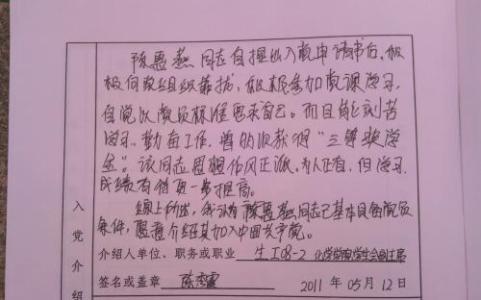 陈惠燕同志自提出入党申请书后,积极
极向党组织靠拢,积极参加党课学习,
自觉以党员标准要求自己。而且能刻苦
学习,勤奋工作,曾两次获得“三等奖学
金”。该同志思想作风正派,为人正直,但学习
成绩有待进一步提高。
综上所述,我认为陈惠燕同志已基本具备党员
条件,愿意介绍其加入中国共产党。
入党介绍
介绍人单位、职务或职业 生工08-2 化学学院学生会副主席
签名或盖章 陈
2011 年 05 月 12 日